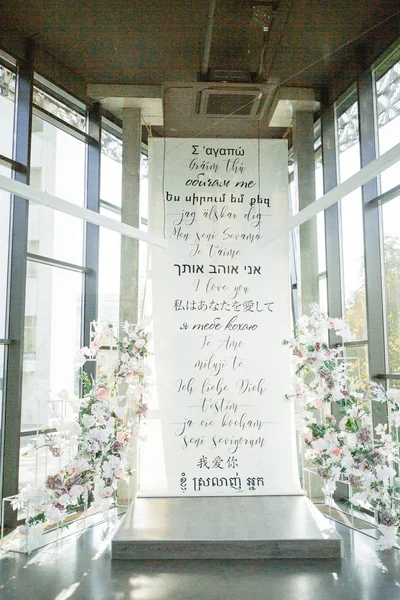 Σ 'αγαπώ
Gráim thú
обичам те
Ես սիրում եմ քեզ
jag älskar dig
Men seni Sevama
Je t'aime
אני אוהב אותך
I love you
私はあなたを愛して
я тебе кохаю
Te Amo
miluji tě
Ich liebe Dich
t'estim
ja cie kocham
seni seviyorum
我爱你
ខ្ញុំ ស្រលាញ់ អ្នក